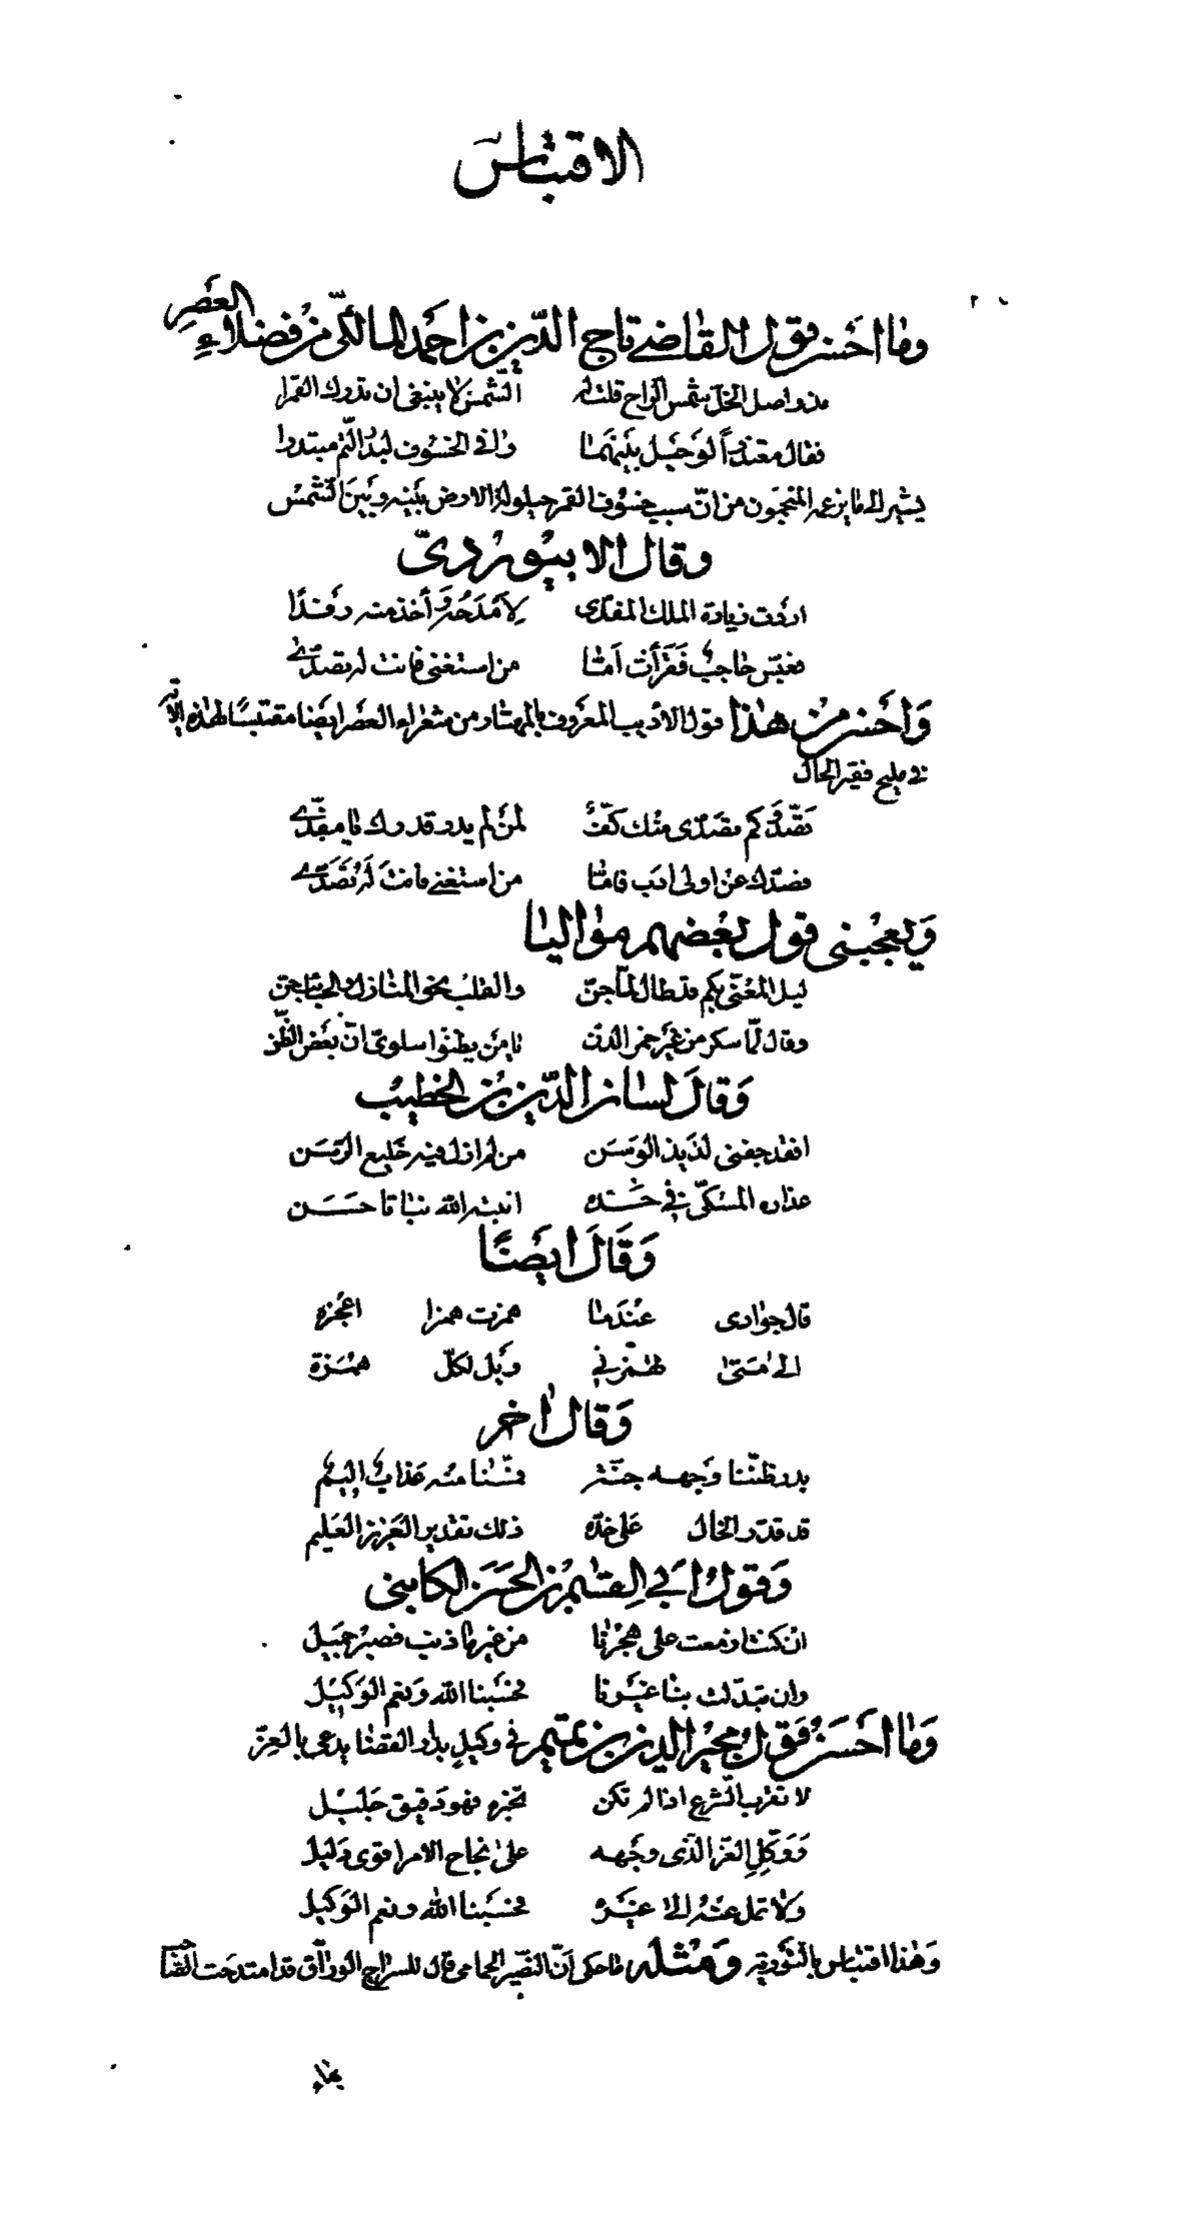 الاقتباس
وما احسن قول القاضي تاج الدين بن احمد المالكي من فضلاء العصر
مذ واصل الخل شمس الراح قلت له الشمس لا ينبغي ان تدرك القمرا
فقال معتذراً لو حيل بينهما وافى الخسوف لبدر التم مبتدرا
يشير الى ما يزعمه المنجمون من ان سبب خسوف القمر حيلولة الارض بينه وبين الشمس
وقال الابيوردي
اردت زيادة الملك المفدى لامدحه وآخذ منه رفدا
فعبس حاجب فقرأت اما من استغنى فانت له تصدى
واحسن من هذا قول الاديب المعروف بالمهتار من شعراء العصر ايضا مقتبسا لهذه الآية
في مليح فقير الحال
تصدق كم تصدى منك كف لمن لم يدر قدرك يا مفدى
وصدك عن اولى ادب فاما من استغنى فانت له تصدى
ويعجبني قول بعضهم مواليا
ليل المعنى بكم قد طال لما جن والقلب نحو المنازل والحبايب حن
وقال لما سكر من غير خمر الدن يا من يظنوا سلوى ان بعض الظن
وقال لسان الدين بن الخطيب
افقد جفنى لذيذ الوسن من لم ازل فيه خليع الرسن
عذاره المسكي في خده انبته الله نباتا حسن
وقال ايضا
قال جوادى عندما همزت همزا اعجزه
الى متى تهمزني ويل لكل همزة
وقال آخر
بدر ظننا وجهه جنة فمسنا منه عذاب اليم
قد قدر الخال على خده ذلك تقدير العزيز العليم
وقول ابي القسم بن الحسن الكاتبي
ان كنت ازمعت على هجرنا من غير ما ذنب فصبر جميل
وان تبدلت بنا غيرنا فحسبنا الله ونعم الوكيل
وما احسن قول مجير الدين بن تميم في وكيل بدار القضا يدعى بالعز
لا تقرب الشرع اذا لم تكن تخبره فهو دقيق جليل
ووكل العز الذى وجهه على نجاح الامر اقوى دليل
ولا تمل عنه الى غيره فحسبنا الله ونعم الوكيل
وهذا اقتباس بالتورية ومثله ما حكى ان النصير الحمامى قال للسراج الوراق قد امتدحت